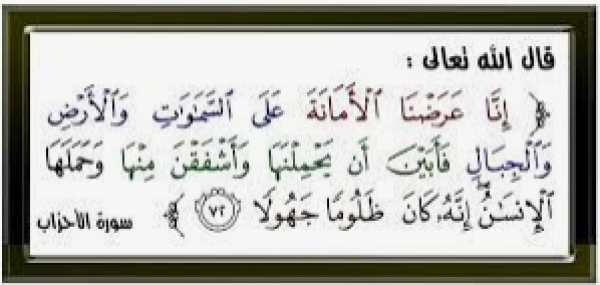 قال الله تعالى :
﴿ إِنَّا عَرَضْنَا الْأَمَانَةَ عَلَى السَّمَٰوَٰتِ وَالْأَرْضِ
وَالْجِبَالِ فَأَبَيْنَ أَن يَحْمِلْنَهَا وَأَشْفَقْنَ مِنْهَا وَحَمَلَهَا
الْإِنسَٰنُ ۖ إِنَّهُۥ كَانَ ظَلُومًا جَهُولًا ٧٢ ﴾ سورة الأحزاب